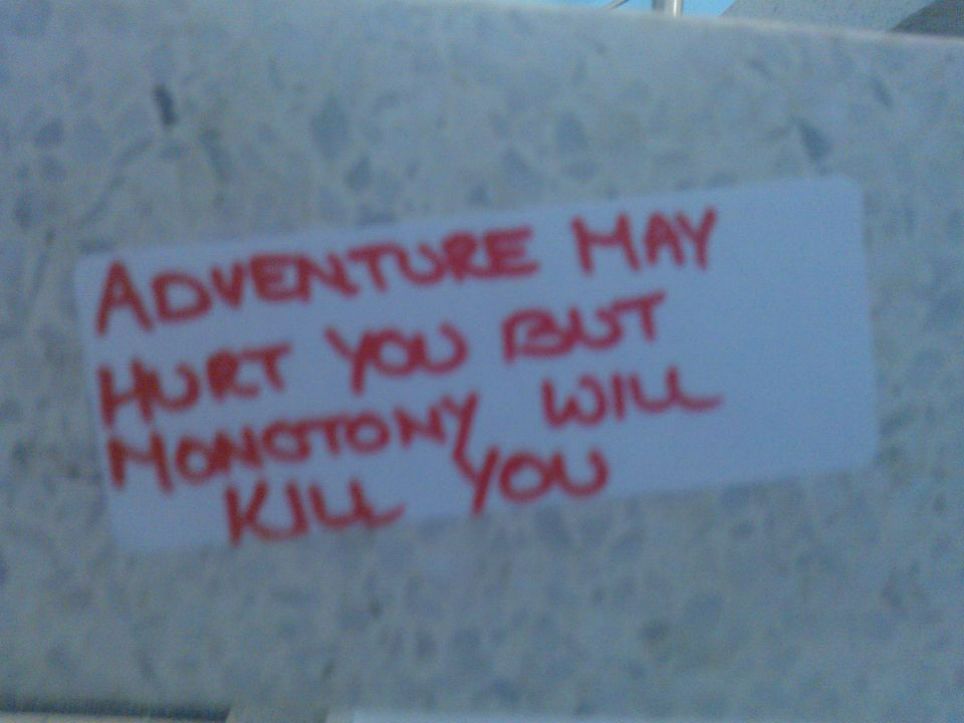 ADVENTURE MAY
HURT YOU BUT
MONOTONY WILL
KILL YOU